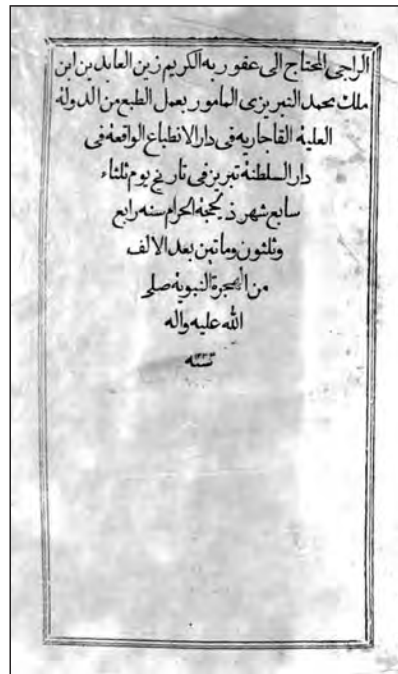 الراجی المحتاج الی عفو ربه الکریم زین العابدین ابن
ملك محمد التبریزی المامور بعمل الطبع من الدولة
العلیة القاجاریه فی دار الانطباع الواقعة فی
دار السلطنة تبریز فی تاریخ یوم ثلثاء
سابع شهر ذیحجة الحرام سنه رابع
وثلثون وماتین بعد الالف
من الهجرة النبویة صلی
الله علیه واله
سنه ۱۲۳۴